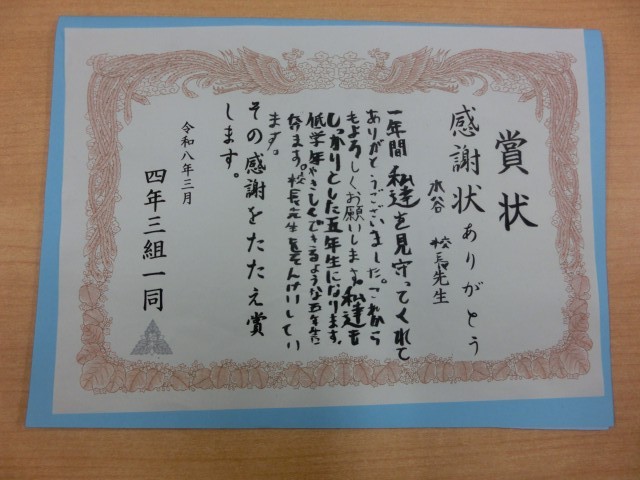 賞状
感謝状ありがとう
水谷 校長先生
一年間私達を見守ってくれて
ありがとうございました。これから
もよろしくお願いします。私達も
しっかりとした五年生になります。
低学年やさしくできるような五年生に
なります。校長先生をそんけいしてい
ます。
その感謝をたたえ賞
します。
令和八年三月
四年三組一同